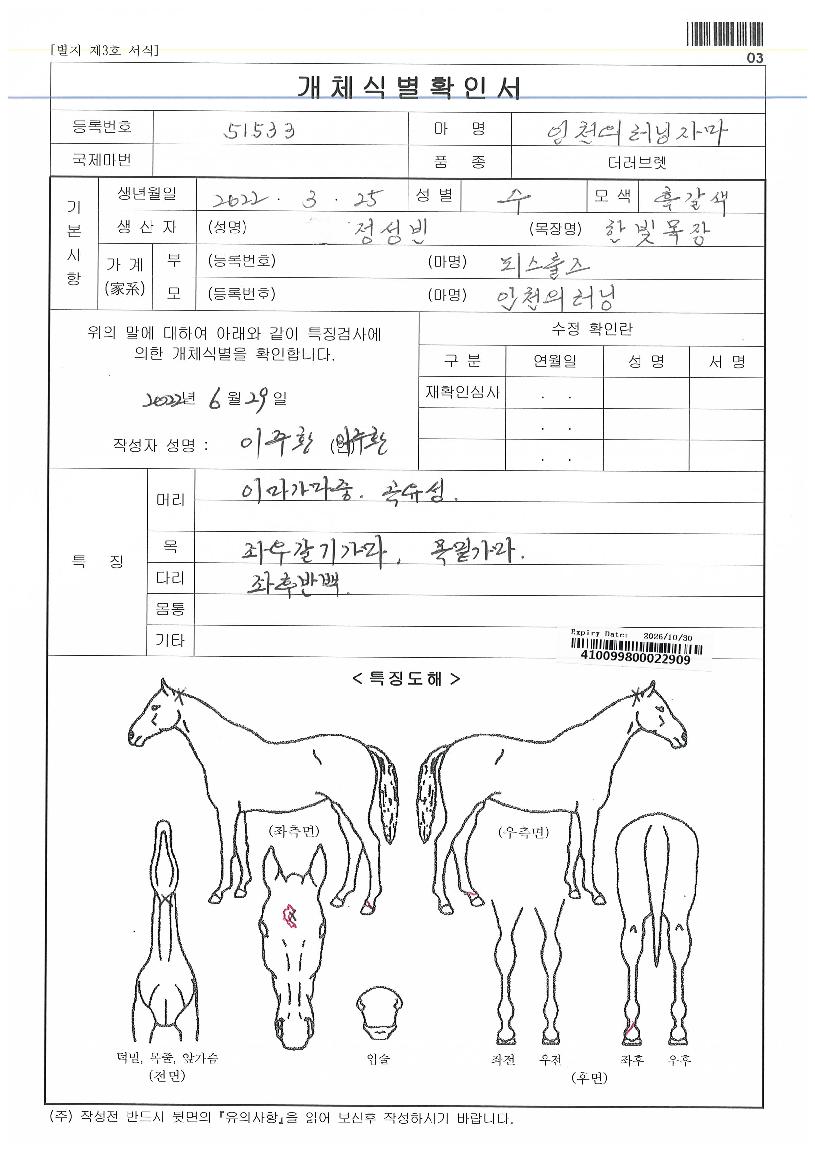 [별지 제3호 서식]
03
개체식별확인서
등록번호 51533 마 명 인천의러닝자마
국제마번 품 종 더러브렛
기본사항
생년월일 2022 . 3 . 25 성 별 수 모 색 흑갈색
생 산 자 (성명) 정성빈 (목장명) 한빛목장
가 계 (家系) 부 (등록번호) (마명) 피스룰즈
모 (등록번호) (마명) 인천의러닝
위의 말에 대하여 아래와 같이 특징검사에
의한 개체식별을 확인합니다.
2022년 6월 29일
작성자 성명 : 이주환 (인) 이주환
수정 확인란
구 분 연월일 성 명 서 명
재확인심사 . .
. .
. .
특 징
머리 이마가마중. 곡유성.
목 좌우갈기가마, 목밑가마.
다리 좌후반백.
몸통
기타
Expiry Date: 2026/10/30
410099800022909
< 특징도해 >
(좌측면) (우측면)
턱밑, 목줄, 앞가슴
(전면)
입술
좌전 우전 좌후 우후
(후면)
(주) 작성전 반드시 뒷면의 『유의사항』을 읽어 보신후 작성하시기 바랍니다.